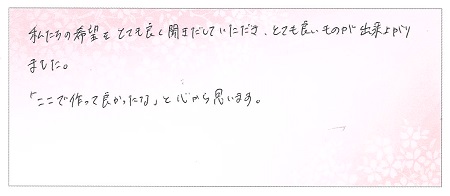 私たちの希望をとても良く聞きだしていただき、とても良いものが出来上がり
ました。
「ここで作って良かったな」と心から思います。